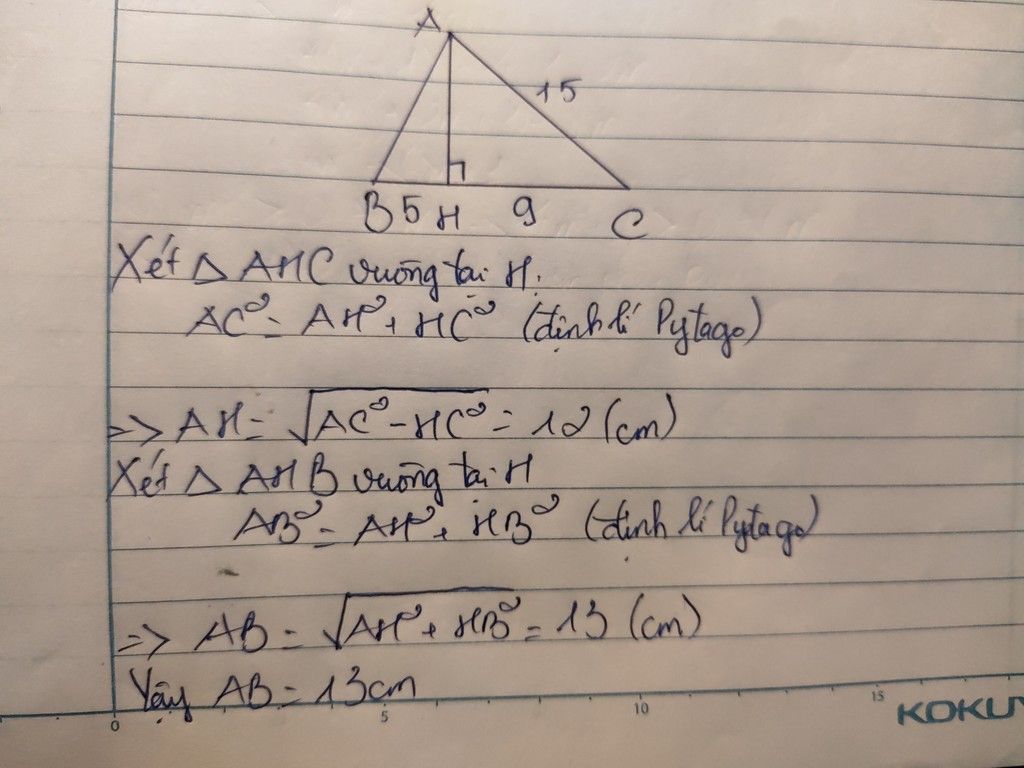 A
15
B 5 H 9 C
Xét △ AHC vuông tại H.
AC² = AH² + HC² (định lí Pytago)
=> AH = √AC² - HC² = 12 (cm)
Xét △ AHB vuông tại H
AB² = AH² + HB² (định lí Pytago)
=> AB = √AH² + HB² = 13 (cm)
Vậy AB = 13cm
0 5 10 15 KOKUY